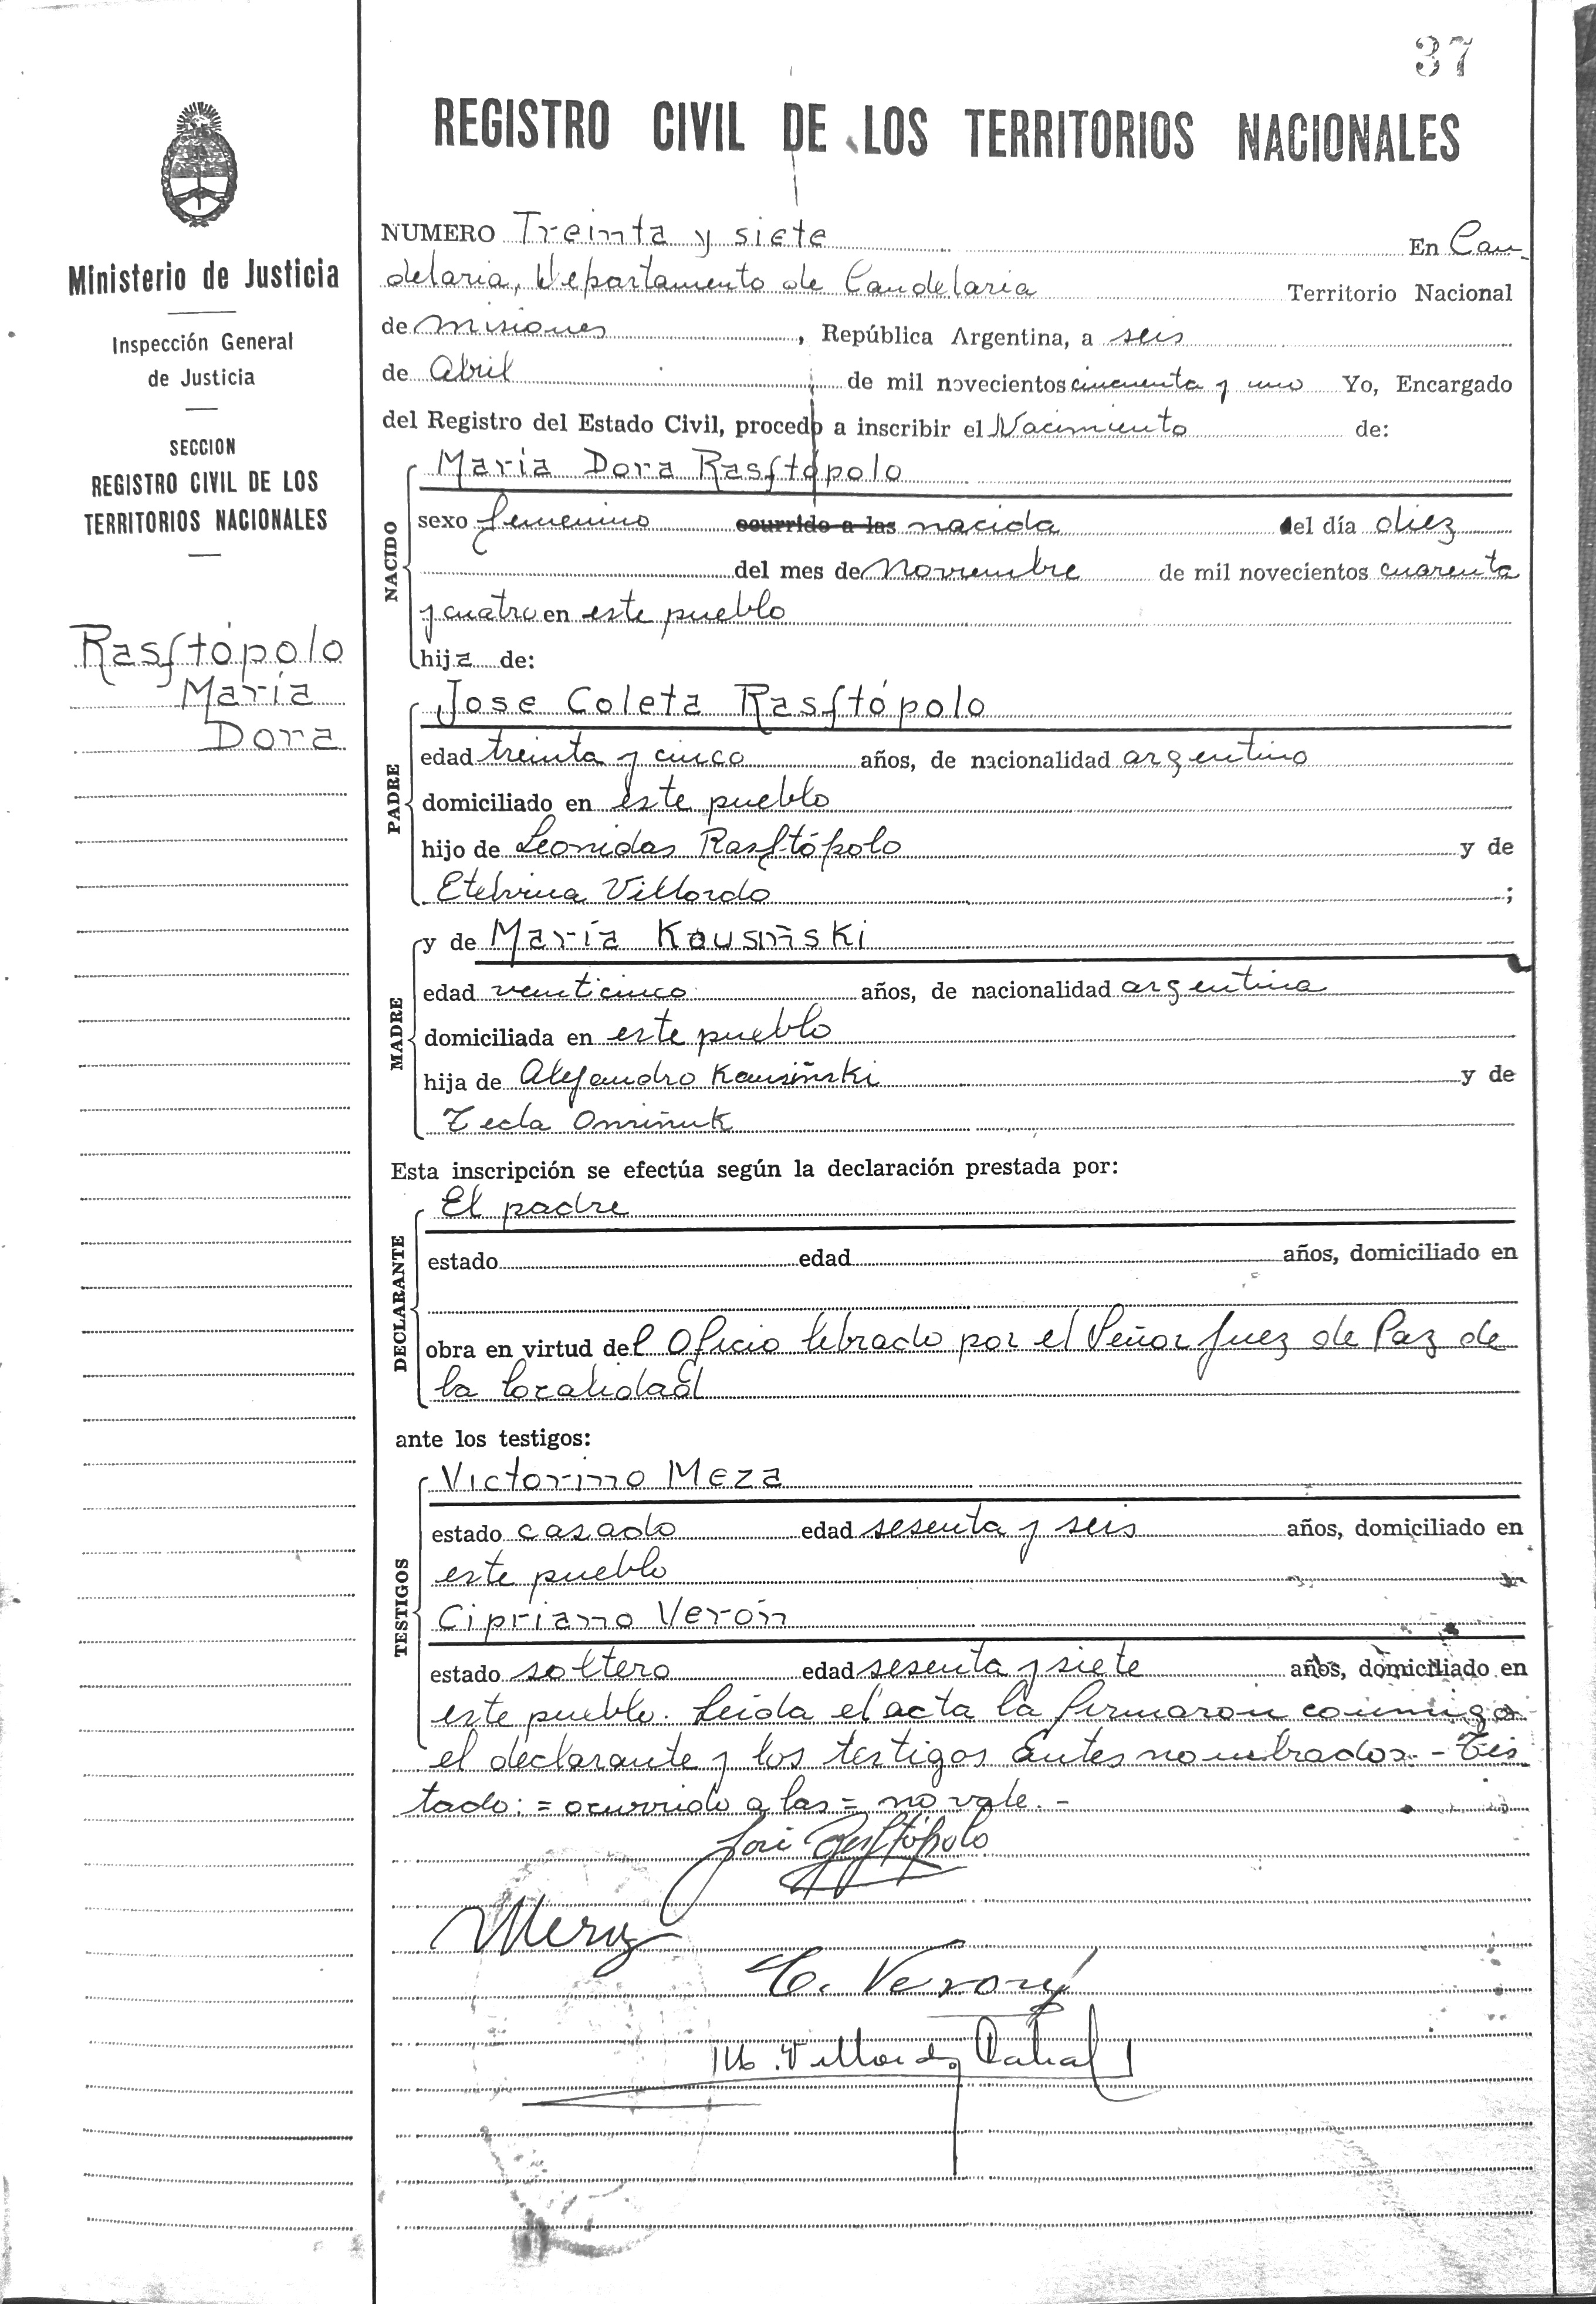 37
REGISTRO CIVIL DE LOS TERRITORIOS NACIONALES
Ministerio de Justicia
Inspección General
de Justicia
SECCION
REGISTRO CIVIL DE LOS
TERRITORIOS NACIONALES
Rasftópolo
María
Dora
NUMERO Treinta y siete En Can-
delaria, Departamento de Candelaria Territorio Nacional
de Misiones, República Argentina, a seis
de Abril de mil novecientos cincuenta y uno Yo, Encargado
del Registro del Estado Civil, procedo a inscribir el Nacimiento de:
NACIDO
María Dora Rasftópolo
sexo femenino ocurrido a las nacida el día diez
del mes de Noviembre de mil novecientos cuarenta
y cuatro en este pueblo
hija de:
PADRE
Jose Coleta Rasftópolo
edad treinta y cinco años, de nacionalidad argentino
domiciliado en este pueblo
hijo de Leonidas Rasftópolo y de
Etelvina Villordo ;
MADRE
y de María
edad veinticinco años, de nacionalidad argentina
domiciliada en este pueblo
hija de Alejandro y de
Tecla
Esta inscripción se efectúa según la declaración prestada por:
DECLARANTE
El padre
estado edad años, domiciliado en
obra en virtud del Oficio librado por el Señor Juez de Paz de
la localidad
ante los testigos:
TESTIGOS
Victorino Meza
estado casado edad sesenta y seis años, domiciliado en
este pueblo
Cipriano Verón
estado soltero edad sesenta y siete años, domiciliado en
este pueblo. Leida el acta la firmaron conmigo
el declarante y los testigos antes nombrados. - Tes
tado: = ocurrido a las = no vale. -
José Rasftópolo
C. Verón